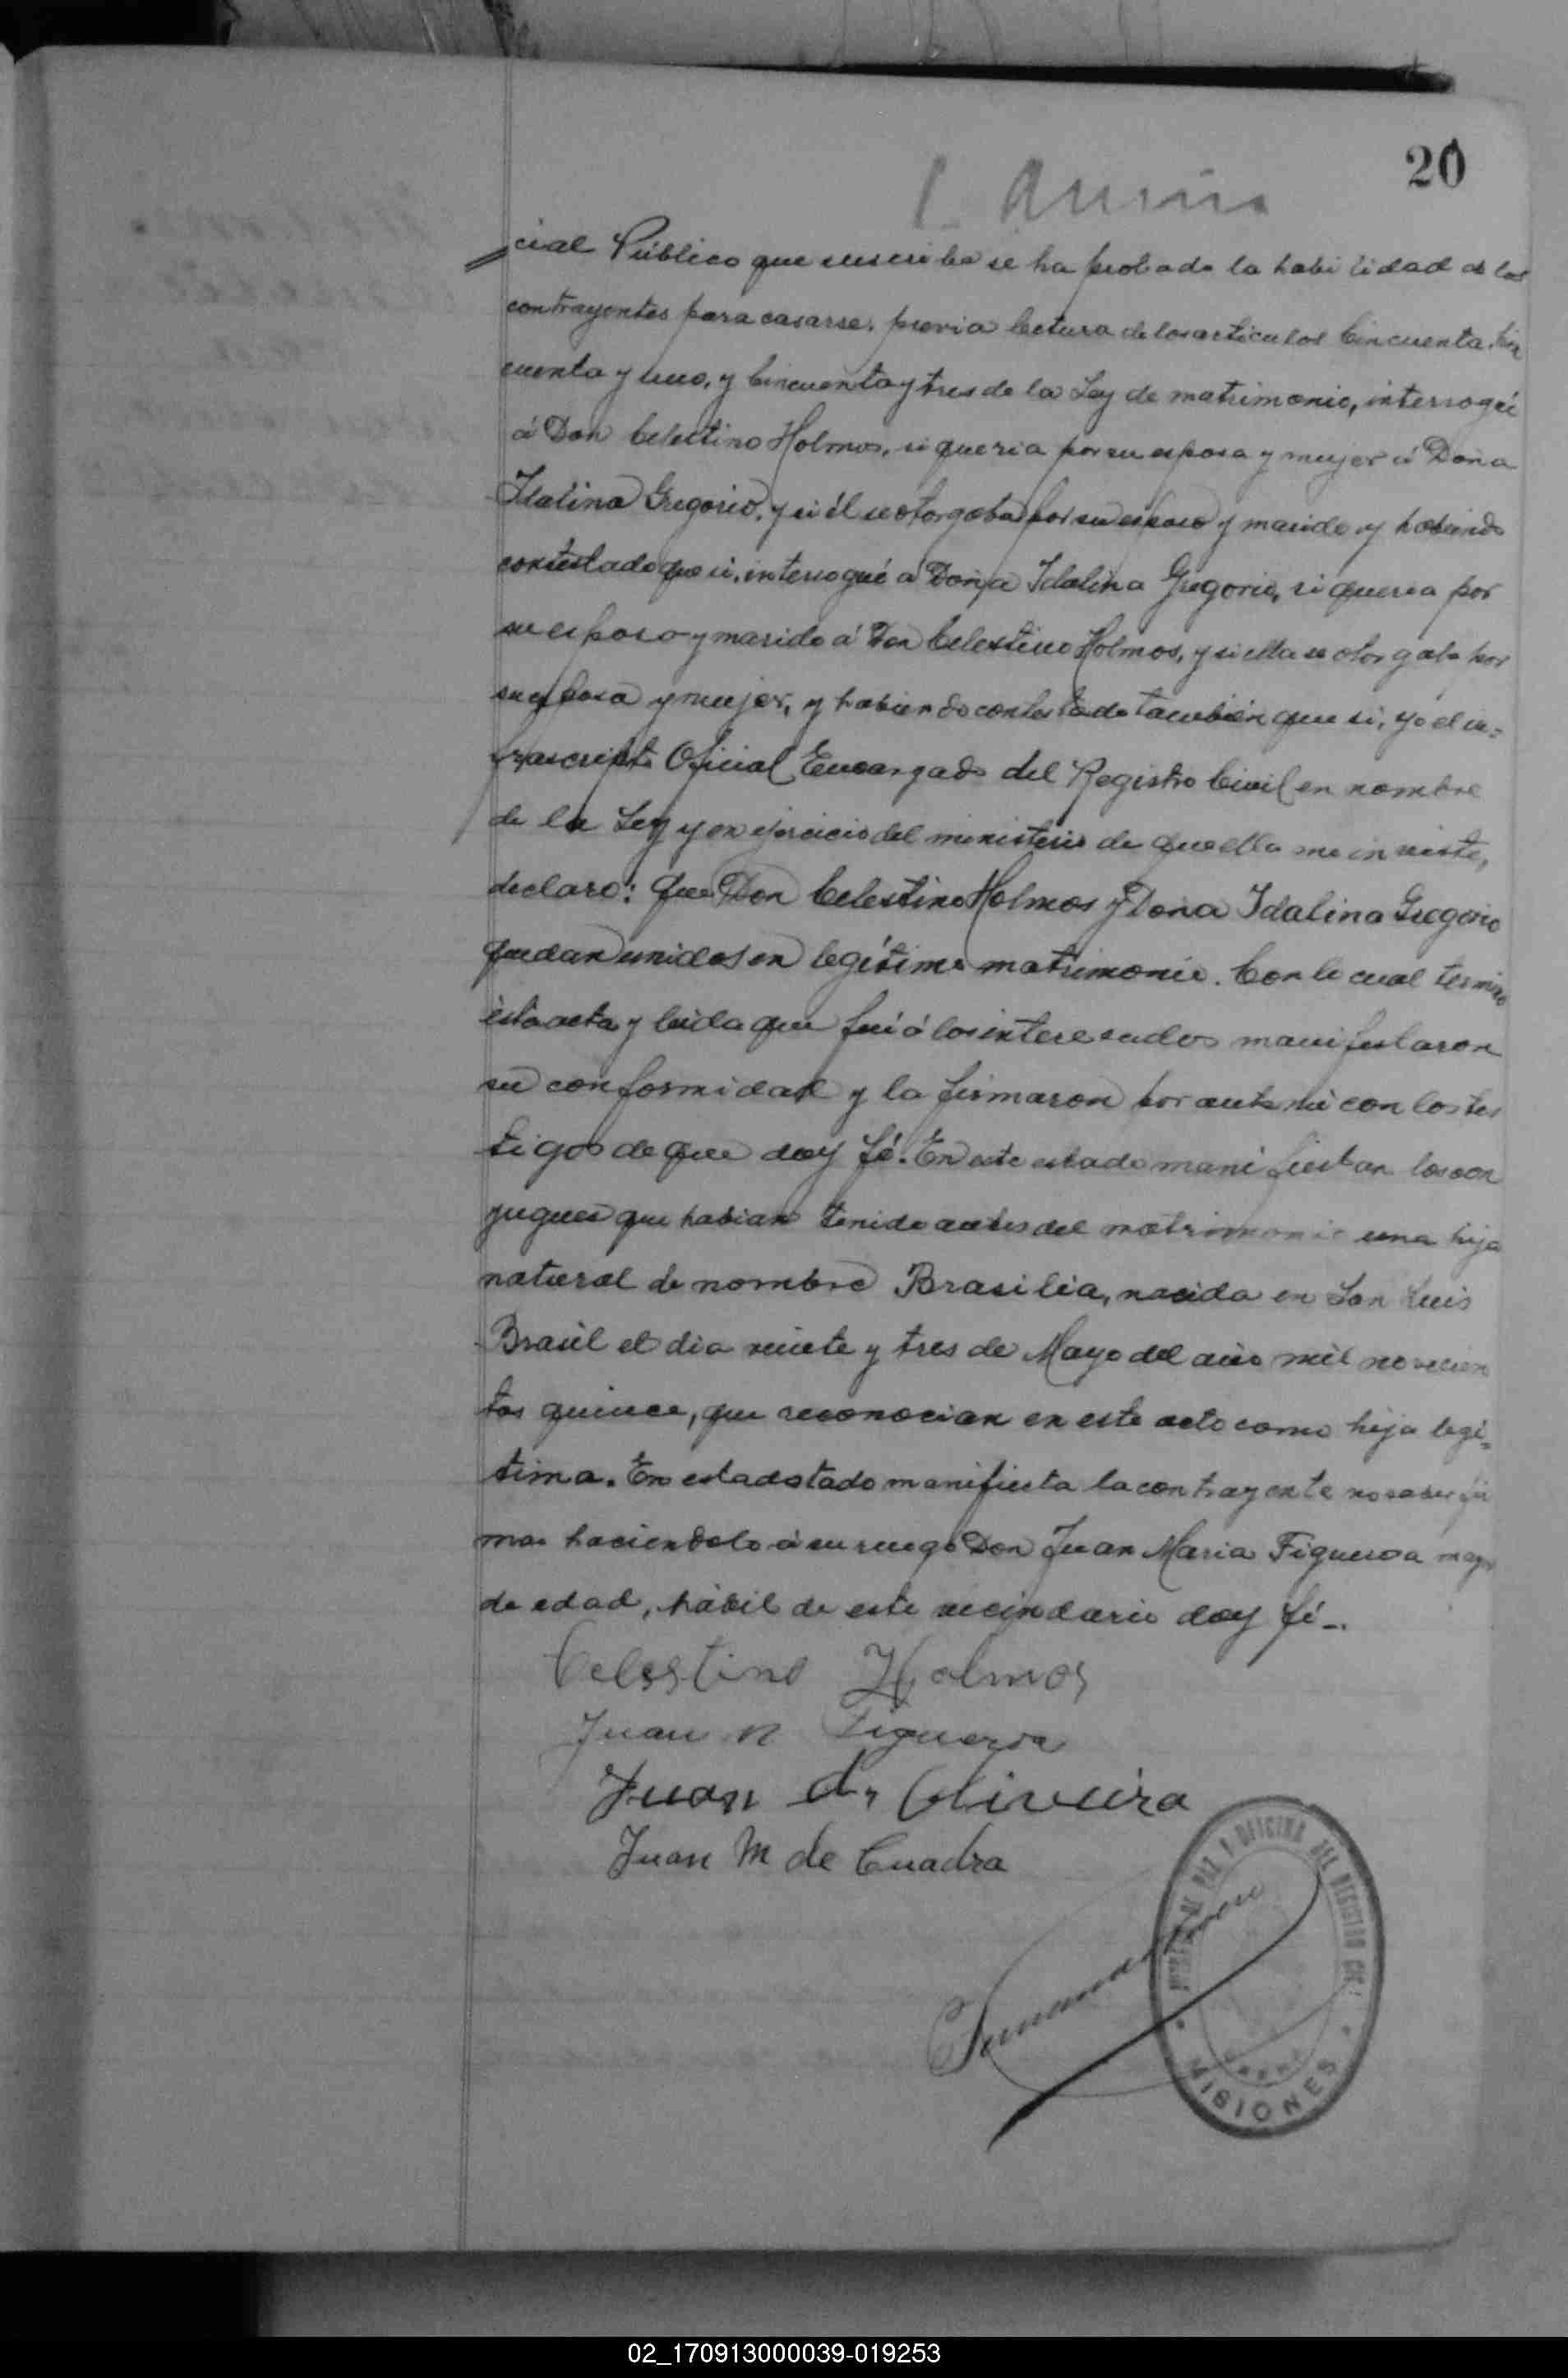 20
cial Público que suscribe se ha probado la habilidad de los
contrayentes para casarse, previa lectura de los articulos Cincuenta, Cin
cuenta y uno, y Cincuenta y tres de la Ley de matrimonio, interrogué
á Don Celestino Holmos, si queria por su esposa y mujer á Doña
Idalina Gregorio, y si él se otorgaba por su esposo y marido y habiendo
contestado que si, interrogué á Doña Idalina Gregorio, si queria por
su esposo y marido á Don Celestino Holmos, y si ella se otorgaba por
su esposa y mujer, y habiendo contestado tambien que si, yo el in=
frascripto Oficial Encargado del Registro Civil en nombre
de la Ley y en ejercicio del ministerio de que ella me inviste,
declaro: Que Don Celestino Holmos y Doña Idalina Gregorio
quedan unidos en legítimo matrimonio. Con lo cual termino
ésta acta y leida que fué á los interesados manifestaron
su conformidad y la firmaron por ante mi con los tes
tigos de que doy fé. En este estado manifiestan los con
yugues que habian tenido antes del matrimonio una hija
natural de nombre Brasilia, nacida en San Luis
Brasil el dia veinte y tres de Mayo del año mil novecien
tos quince, que reconocian en este acto como hija legí=
tima. En estado manifiesta la contrayente no saber fir
mar haciendolo á su ruego Don Juan Maria Figueroa mayor
de edad, hábil de este vecindario doy fé_.
Celestino Holmos
Juan M Figueroa
Juan d, Oliveira
Juan M de Cuadra
DE PAZ Y OFICINA DEL REGISTRO CIVIL
MISIONES
02_170913000039-019253